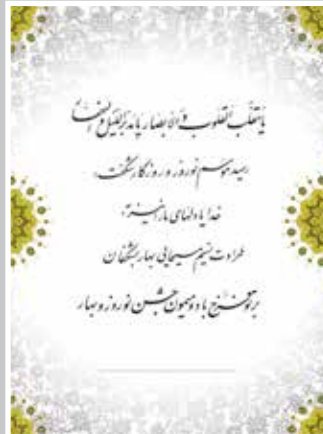 یا مقلب القلوب و الابصار یا مدبر اللیل و النهار
رسید موسم نوروز و روزگار شگفت
خدایا دلهای ما را نیز به
طراوت نسیم مسیحایی بهار بشکفان
بر تو فرخ باد و میمون جشن نوروز و بهار